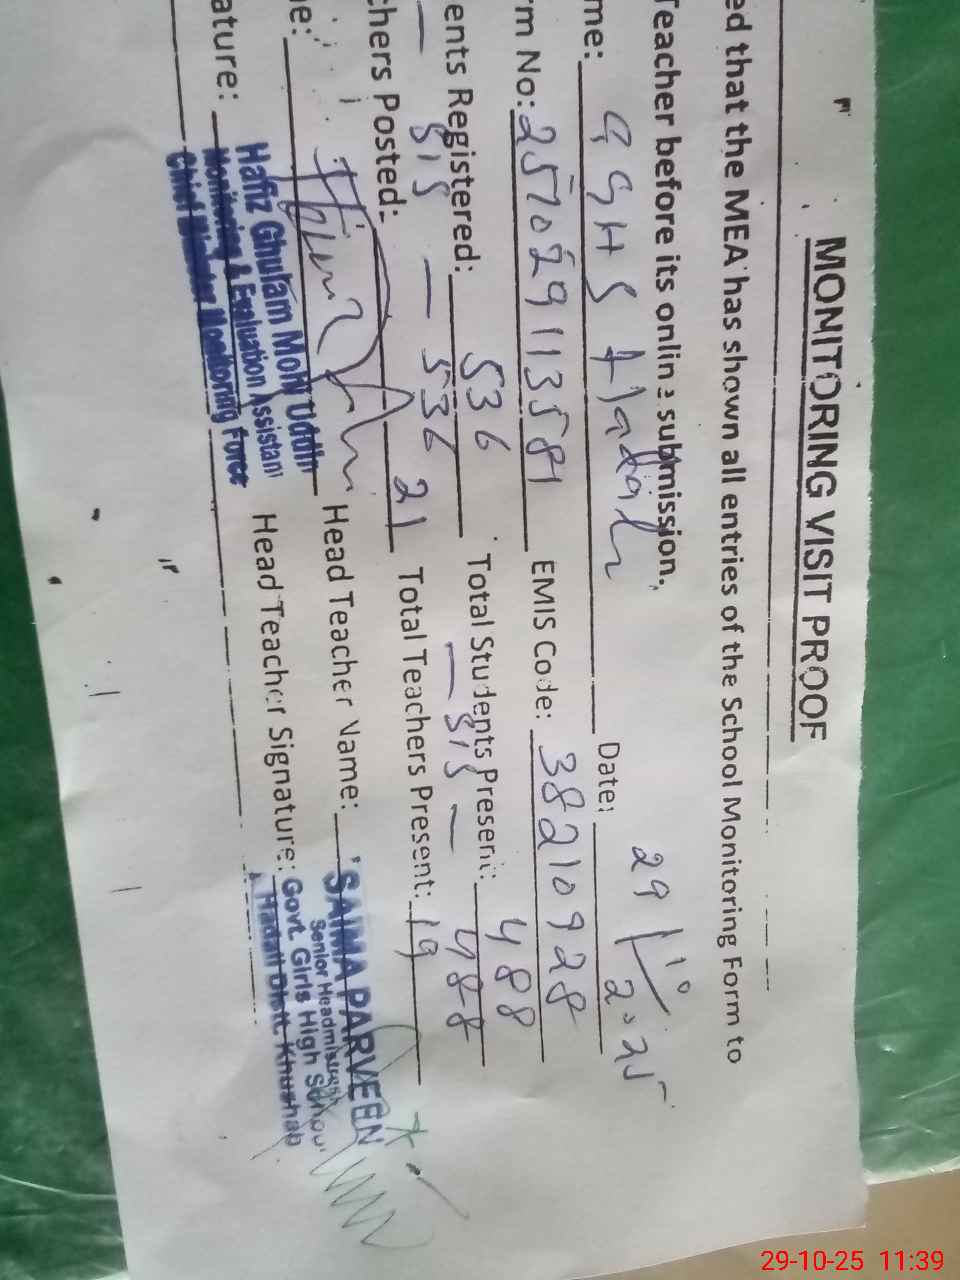 MONITORING VISIT PROOF
ed that the MEA has shown all entries of the School Monitoring Form to
Teacher before its online submission.
me: GGHS Hadali Date: 29/10/2025
rm No: 257029113581 EMIS Code: 38210928
ents Registered: 536 Total Students Present: 488
— SIS — 536 — SIS — 488
chers Posted: 21 Total Teachers Present: 19
e: Head Teacher Name: SAIMA PARVEEN
Senior Headmistress
ature: Head Teacher Signature: Govt. Girls High School
Hadali Distt. Khushab
Hafiz Ghulam Mohy Uddin
Monitoring & Evaluation Assistant
Chief Minister Monitoring Force
29-10-25 11:39